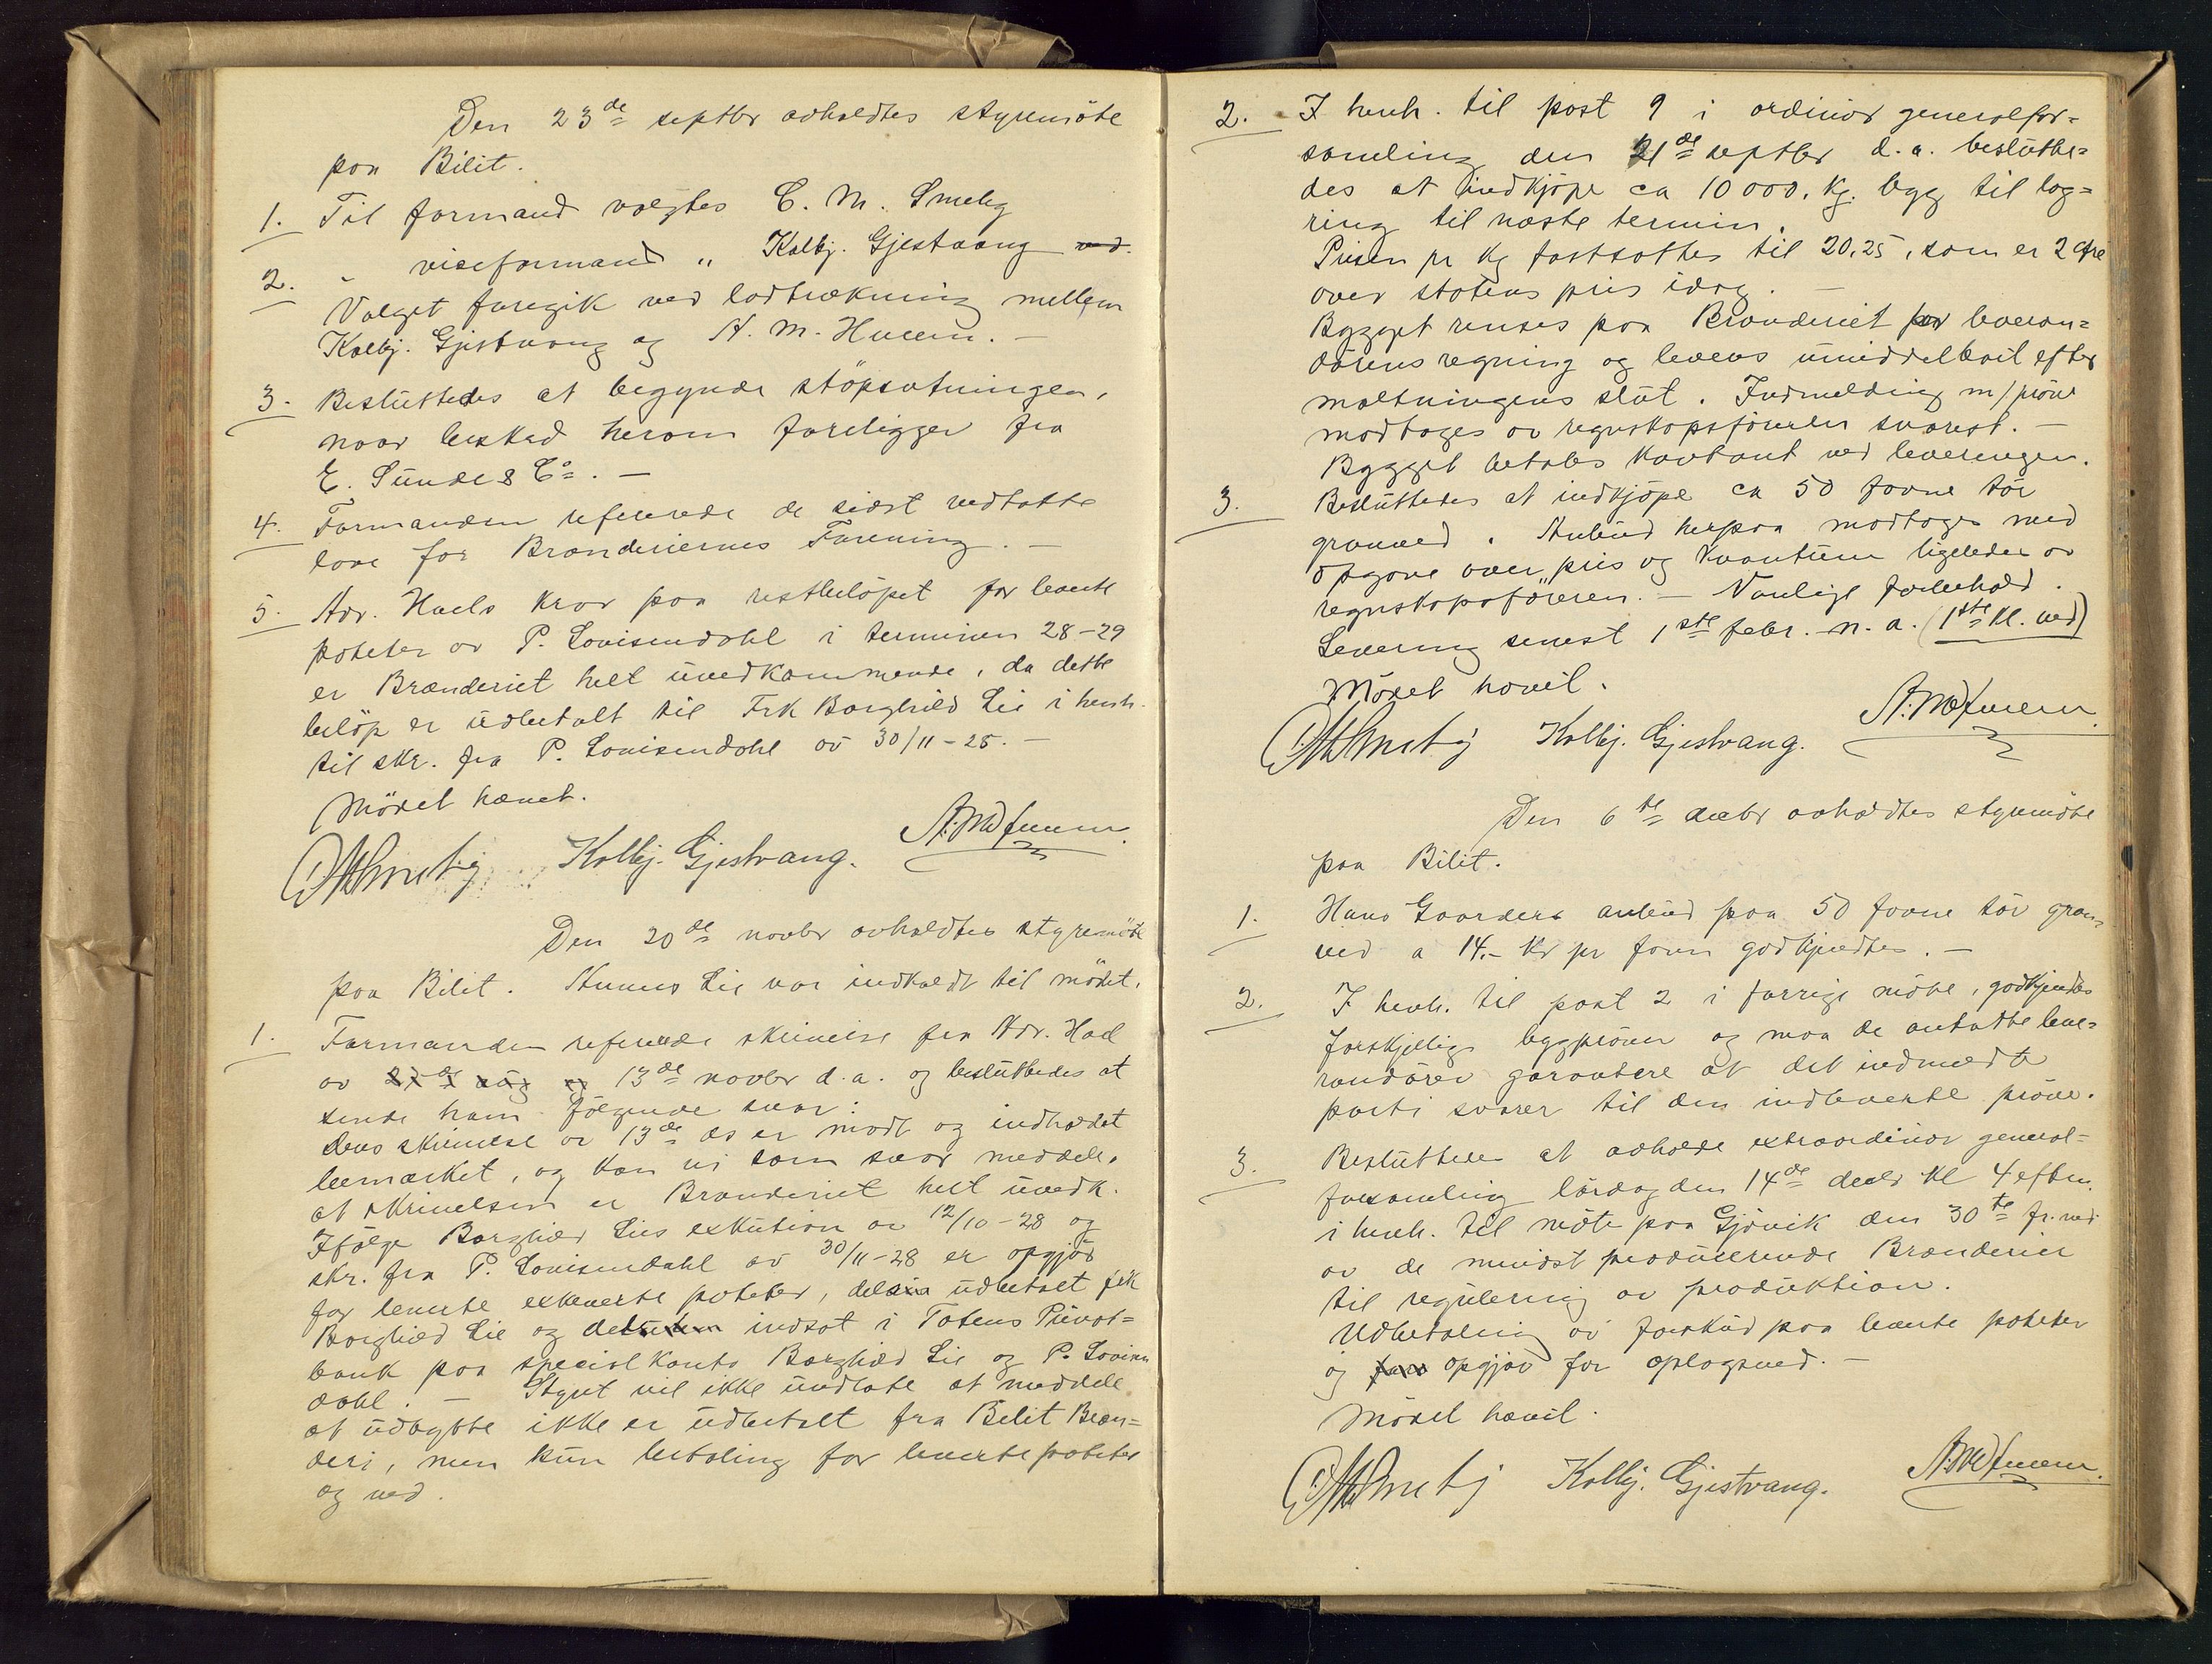 Den 23de septbr avholdtes styremöte
paa Bilit.
1. Til formand valgtes C. M. Smeby
2. " viseformand " Kolbj. Gjestvang ved.
Valget foregik ved lodtrækning mellem
Kolbj. Gjestvang og A. M. Hueem. –
3. Besluttedes at begynde stöpsætningen,
naar besked herom foreligger fra
E. Sunde & Co. –
4. Formanden refererede de sidst vedtatte
love for Brænderiernes Forening. –
5. Adv. Haels krav paa restbelöpet for leverte
poteter av P. Lovisendahl i terminen 28-29
er Brænderiet helt uvedkommende, da dette
belöp er utbetalt til Frk Borghild Lie i henh.
til skr. fra P. Lovisendahl av 30/11-28. –
Mödet hævet.
CMSmeby Kolbj. Gjestvang. A. M. Hueem.
Den 20de novbr avholdtes styremöte
paa Bilit. Lie var indkaldt til mödet.
1. Formanden refererede skrivelse fra Adr. Hael
av 13de novbr d.a. og besluttedes at
sende ham fölgende svar:
Deres skrivelse av 13de ds er modt og indholdet
bemærket, og kan vi som svar meddele,
at skrivelsen er Brænderiet helt uvedk.
Ifölge Borghild Lies exkution av 12/10-28 og
skr. fra P. Lovisendahl av 30/11-28 er opgjör
for leverte poteter, utbetalt frk
Borghild Lie og indsat i Totens Privat=
bank paa specialkonto Borghild Lie og P. Lovisen
dahl. – Styret vil ikke undlate at meddele
at udbytte ikke er udbetalt fra Bilit Bræn=
deri, men kun betaling for leverte poteter
og ved.
2. I henh. til post 9 i ordinær generalfor=
samling den 21de septbr d.a. beslutte=
des at indkjöpe ca 10000. kg. bygg til lag=
ring til næste termin.
Prisen pr kg fastsattes til 20,25, som er 2 öre
over statens pris idag. –
Bygget renses paa Brænderiet for leveran=
dörens regning og leveres umiddelbart efter
maltningens slut. Indmelding m/pröve
modtages av regnskapsföreren snarest. –
Bygget betales kontant ved leveringen.
3. Besluttedes at indkjöpe ca 50 favne tör
granved. Anbud herpaa modtages med
opgave over pris og kvantum ligeledes av
regnskapsföreren. – Vanlige forbehold.
Levering senest 1ste febr. n.a. (1ste kl. ved)
Mödet hævet.
CMSmeby Kolbj. Gjestvang. A. M. Hueem.
Den 6te decbr avholdtes styremöte
paa Bilit.
1. Hans Gaarders anbud paa 50 favne tör gran=
ved a 14.- kr pr favn godkjendtes. –
2. I henh. til post 2 i forrige möte, godkjendes
forskjellige byggpröver og maa de antatte leve=
randörer garantere at det indmeldte
parti svarer til den indleverte pröve.
3. Besluttedes at avholde extraordinær general=
forsamling lördag den 14de decbr kl 4 eftm.
i henh. til möte paa Gjövik den 30te fr. md
av de mindst producerende Brænderier
til regulering av produktion.
Udbetaling av forskud paa leverte poteter
og opgjör for oplagsved. –
Mödet hævet.
CMSmeby Kolbj. Gjestvang. A. M. Hueem.